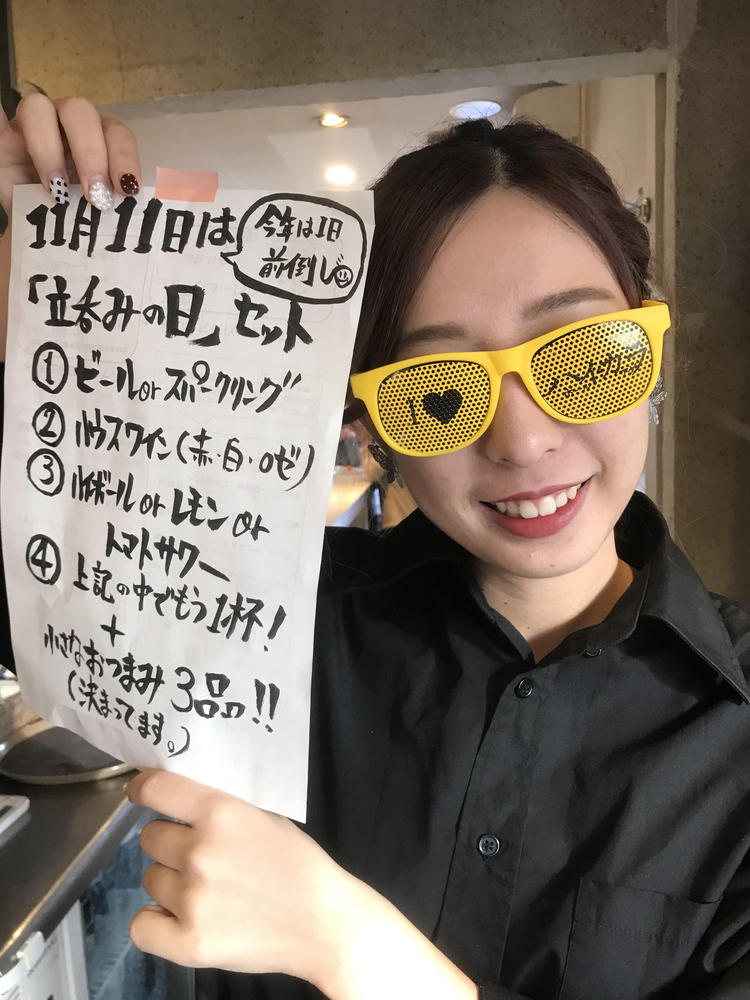 11月11日は
今年は1日
前倒し
「立呑みの日」セット
① ビールorスパークリング
② ハウスワイン(赤・白・ロゼ)
③ ハイボール or レモン or
トマトサワー
④ 上記の中でもう1杯!
+
小さなおつまみ 3品!!
(決まってます。)
I ♥